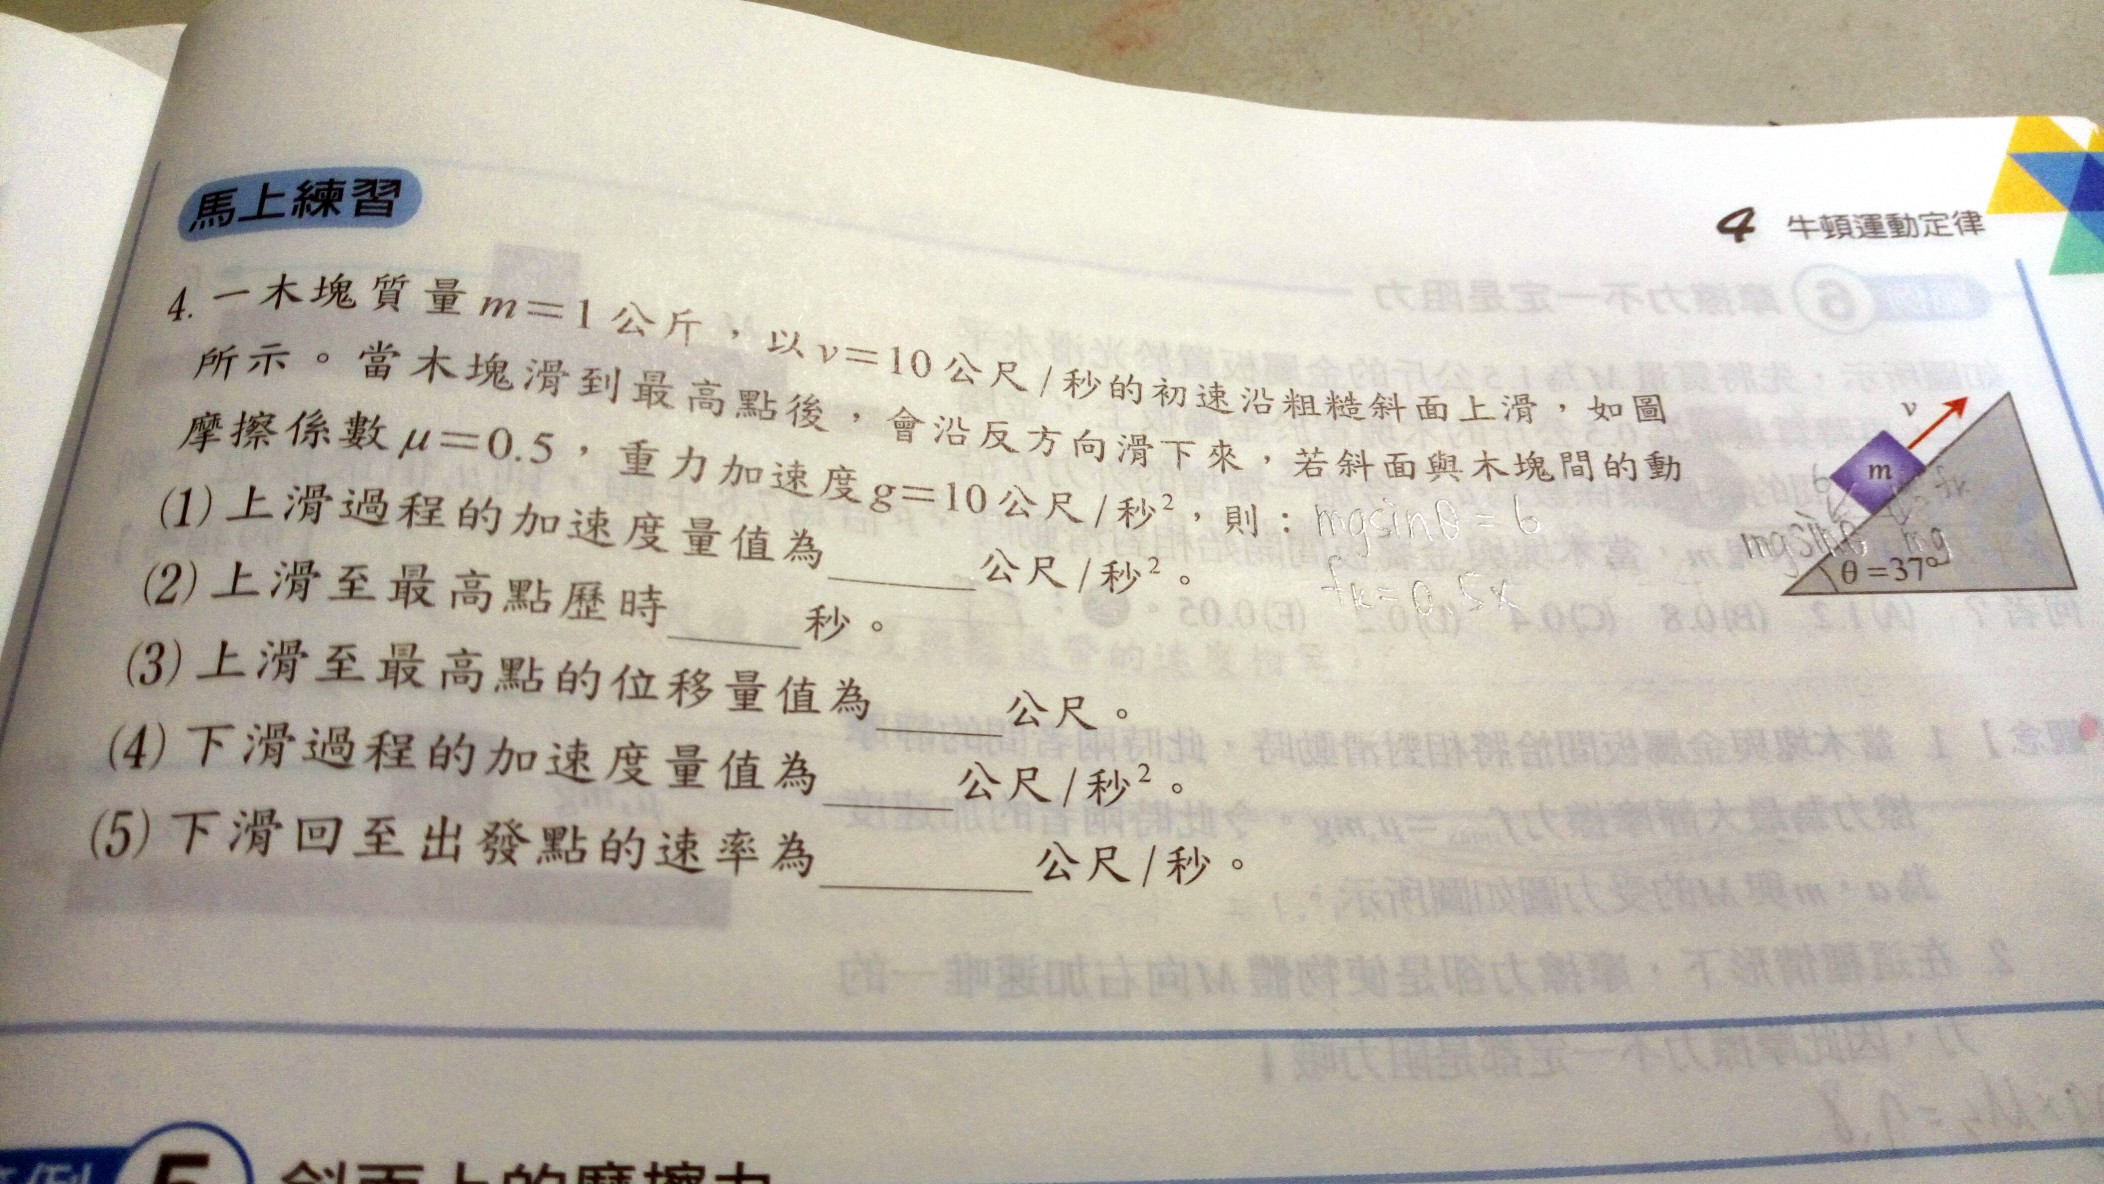 馬上練習
4 牛頓運動定律
4. 一木塊質量 m=1 公斤，以 v=10 公尺/秒的初速沿粗糙斜面上滑，如圖
所示。當木塊滑到最高點後，會沿反方向滑下來，若斜面與木塊間的動
摩擦係數 μ=0.5，重力加速度 g=10 公尺/秒²，則：
mgsinθ=6
fk=0.5x
(1) 上滑過程的加速度量值為______公尺/秒²。
(2) 上滑至最高點歷時______秒。
(3) 上滑至最高點的位移量值為______公尺。
(4) 下滑過程的加速度量值為______公尺/秒²。
(5) 下滑回至出發點的速率為________公尺/秒。
v
m
6
fk
mgsinθ
mg
θ=37°
5 斜面上的摩擦力